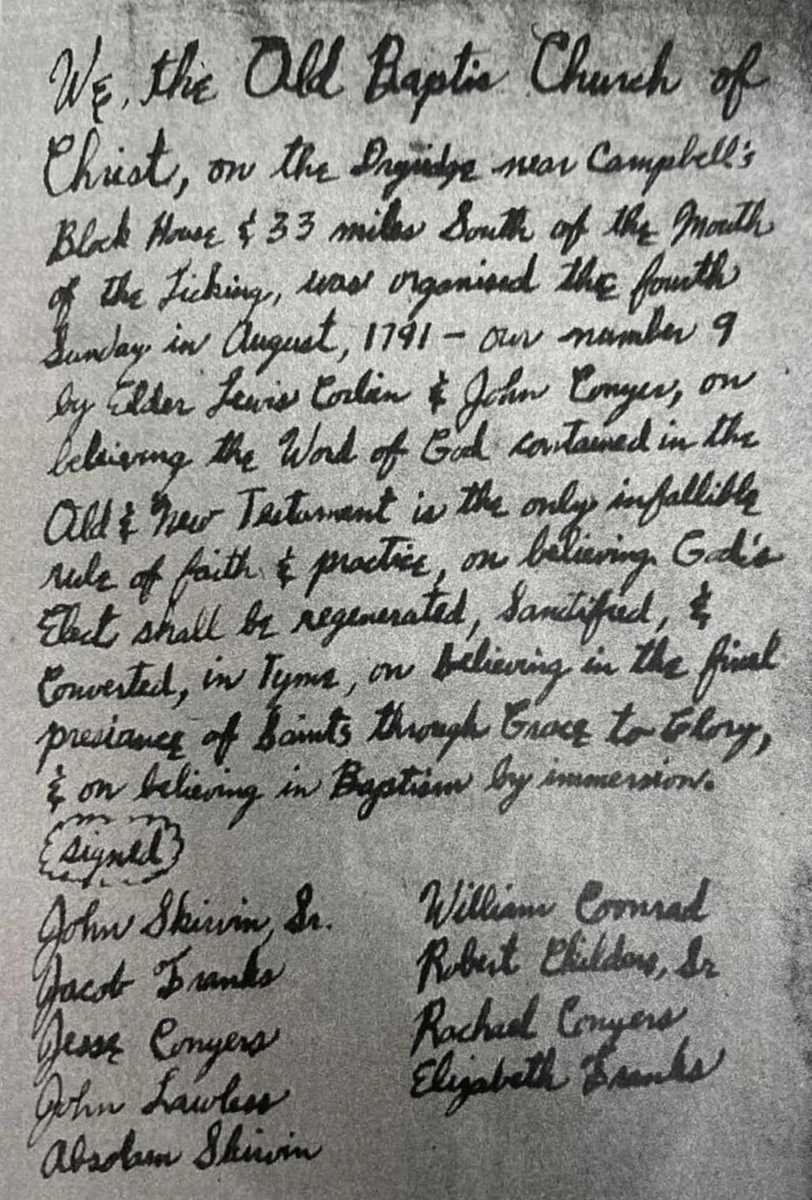 We, the Old Baptis Church of
Christ, on the Dryridge near Campbell's
Block House & 33 miles South of the Mouth
of the Licking, was organised the fourth
Sunday in August, 1791 - our number 9
by Elder Lewis Corbin & John Conyer, on
believing the Word of God contained in the
Old & New Testament is the only infallible
rule of faith & practice, on believing God's
Elect shall be regenerated, Santified, &
Converted, in Tyme, on believing in the final
presiance of Saints through Grace to Glory,
& on believing in Baptism by immersion.
signed
John Skirvin, Sr.
Jacob Franks
Jesse Conyers
John Lawless
Absolam Skirvin
William Conrad
Robert Childers, Sr
Rachael Conyers
Elizabeth Franks